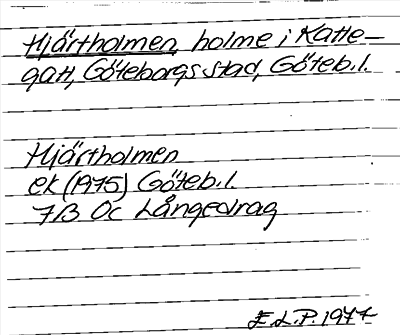 Hjärtholmen, holme i Katte-
gatt, Göteborgs stad, Göteb.l.
Hjärtholmen
ek (1975) Göteb.l.
7B 0c Långedrag
E.L.P. 1977